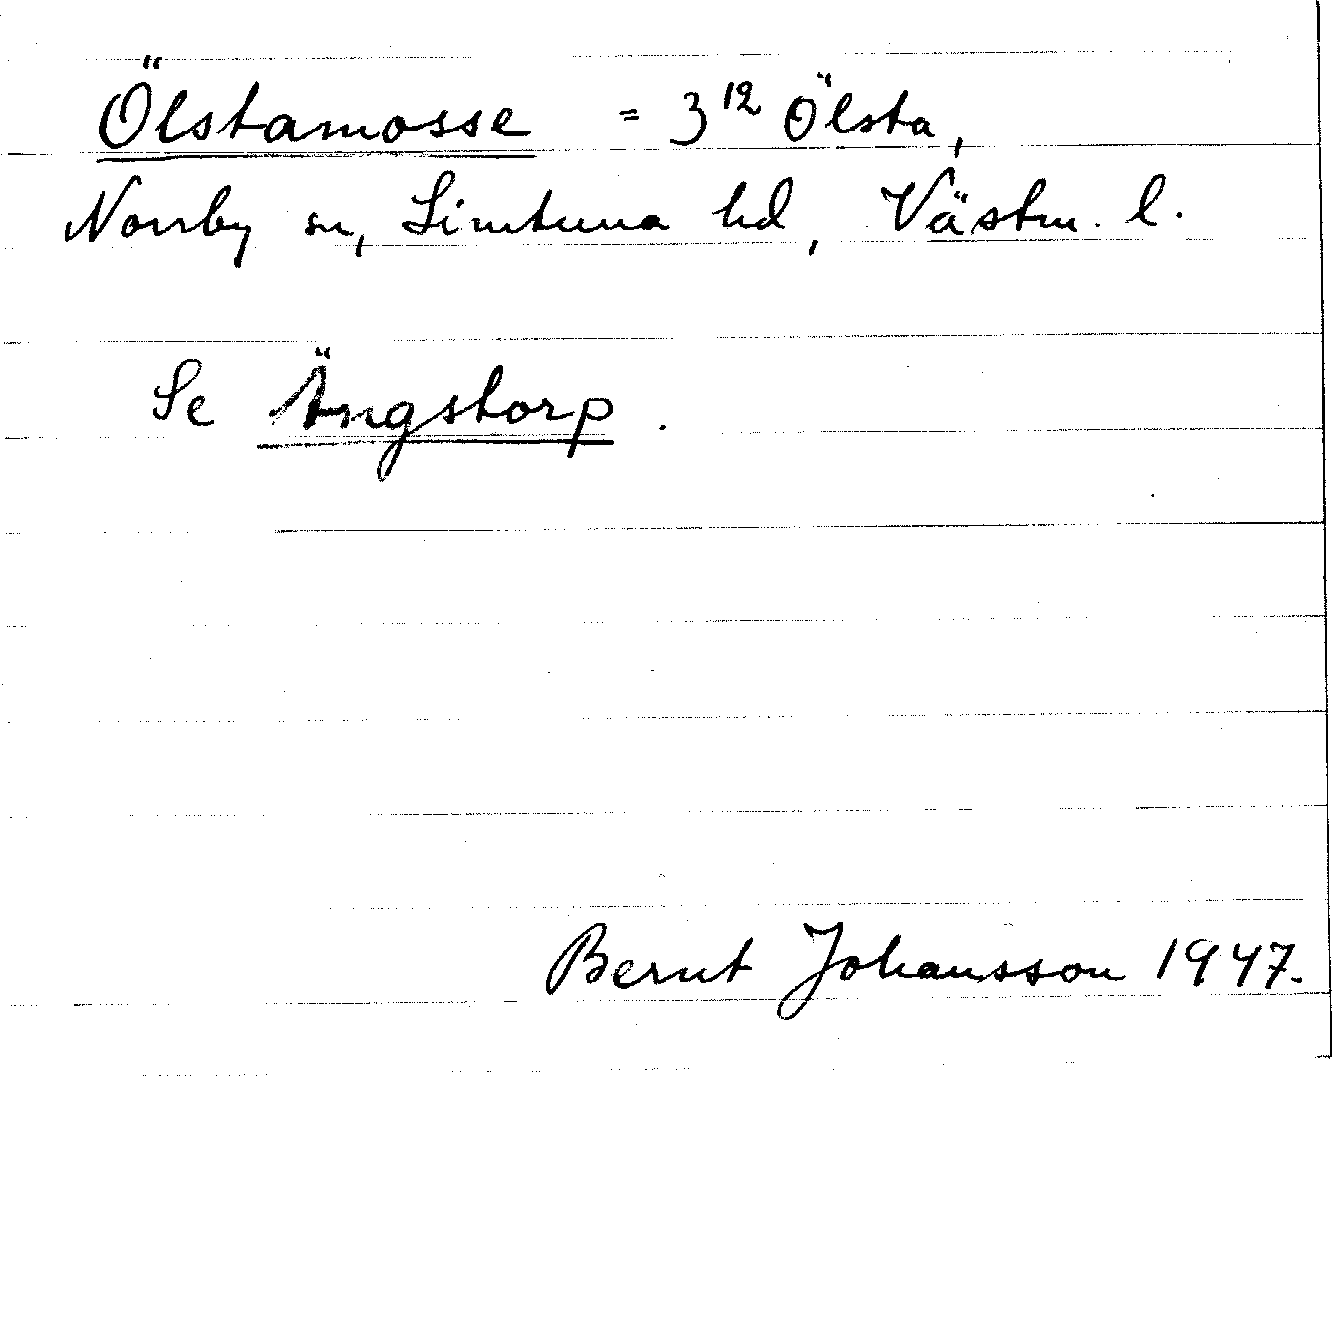 Ölstamosse = 3¹² Ölsta,
Norrby sn, Simtuna hd, Västm. l.
Se Ängstorp.
Bernt Johansson 1947.